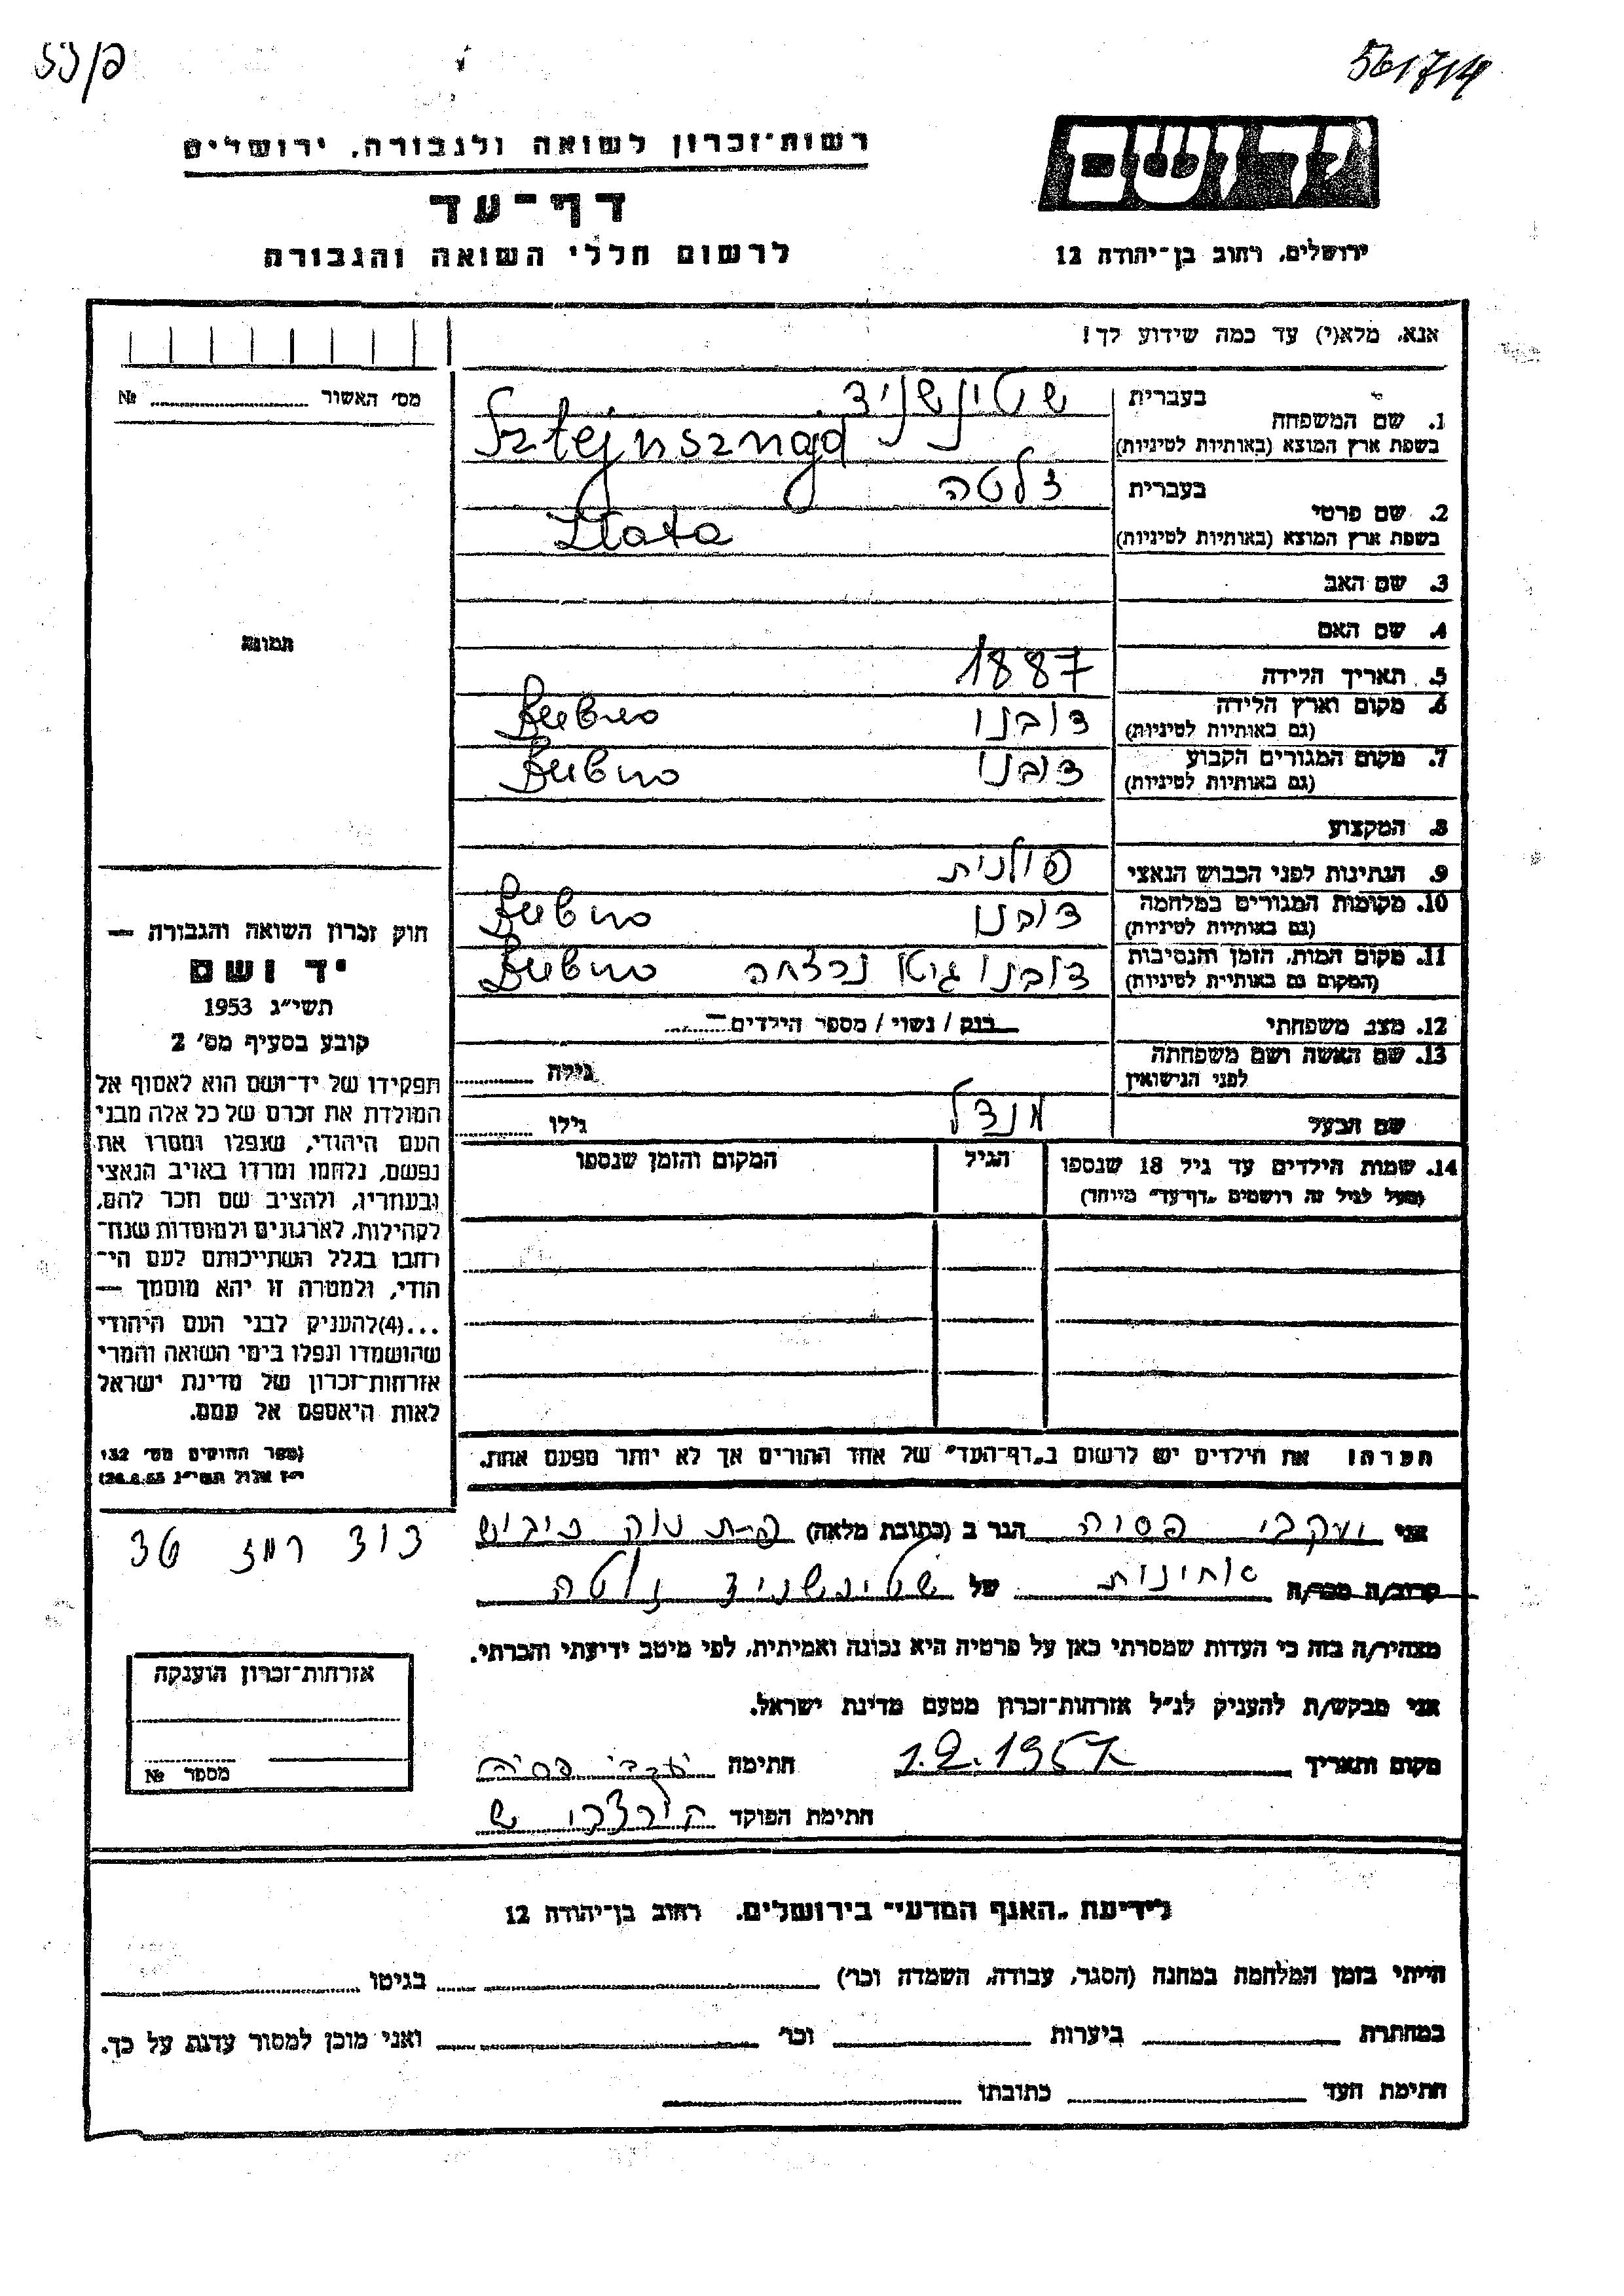 פ/55
561714
רשות־זכרון לשואה ולגבורה, ירושלים
דף־עד
לרשום חללי השואה והגבורה
יד ושם
ירושלים, רחוב בן־יהודה 12
אנא, מלא(י) עד כמה שידוע לך!
מס׳ האשור № 
1. שם המשפחה
בעברית שטינשניד
בשפת ארץ המוצא (באותיות לטיניות) Sztejnsznajd
2. שם פרטי
בעברית זלטה
בשפת ארץ המוצא (באותיות לטיניות) Zlata
3. שם האב
4. שם האם
5. תאריך הלידה 1887
6. מקום וארץ הלידה (גם באותיות לטיניות) דובנו Dubno
7. מקום המגורים הקבוע (גם באותיות לטיניות) דובנו Dubno
8. המקצוע
9. הנתינות לפני הכבוש הנאצי פולנית
10. מקומות המגורים במלחמה (גם באותיות לטיניות) דובנו Dubno
11. מקום המות, הזמן והנסיבות (המקום גם באותיות לטיניות) דובנו גיטו נרצחה Dubno
12. מצב משפחתי רווק / נשוי / מספר הילדים
13. שם האשה ושם משפחתה לפני הנישואין גילה
שם הבעל מנדל גילו
14. שמות הילדים עד גיל 18 שנספו
(מעל לגיל זה רושמים „דף־עד״ מיוחד)
הגיל
המקום והזמן שנספו
תמונה
חוק זכרון השואה והגבורה —
יד ושם
תשי״ג 1953
קובע בסעיף מס׳ 2
תפקידו של יד־ושם הוא לאסוף אל
המולדת את זכרם של כל אלה מבני
העם היהודי, שנפלו ומסרו את
נפשם, נלחמו ומרדו באויב הנאצי
ובעוזריו, ולהציב שם וזכר להם,
לקהילות, לארגונים ולמוסדות שנח־
רבו בגלל השתייכותם לעם הי־
הודי, ולמטרה זו יהא מוסמך —
...(4)להעניק לבני העם היהודי
שהושמדו ונפלו בימי השואה והמרי
אזרחות־זכרון של מדינת ישראל
לאות היאספם אל עמם.
(ספר החוקים מס׳ 132
י״ז אלול תשי״ג 28.8.53)
הערה: את הילדים יש לרשום ב„דף־העד״ של אחד ההורים אך לא יותר מפעם אחת.
אני יעקבי פסיה הגר ב (כתובת מלאה) פ-ת נוה כיבוש
דוד רמז 36
קרוב/ה מכר/ה אחינות של שטינשניד זלטה
מצהיר/ה בזה כי העדות שמסרתי כאן על פרטיה היא נכונה ואמיתית, לפי מיטב ידיעתי והכרתי.
אני מבקש/ת להעניק לנ״ל אזרחות־זכרון מטעם מדינת ישראל.
מקום ותאריך 1.2.1957 חתימה יעקבי פסיה
חתימת הפוקד
אזרחות־זכרון הוענקה
מספר №
לידיעת „האגף המדעי״ בירושלים, רחוב בן־יהודה 12
הייתי בזמן המלחמה במחנה (הסגר, עבודה, השמדה וכו׳) בגיטו
במחתרת ביערות וכו׳ ואני מוכן למסור עדות על כך.
חתימת העד כתובתו